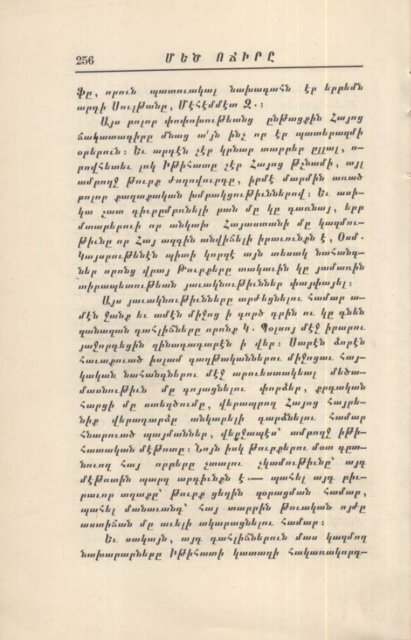 256 ՄԵԾ ՈՃԻՐԸ
Ֆը, որուն պատուակալ նախագահն էր երբեմն
արդի Սուլթանը, Մէհէմմէտ Զ.։
Այս բոլոր փոփոխութեանց ընթացքին Հայոց
ճակատագիրը մնաց ա՛յն ինչ որ էր պատերազմի
օրերուն։ Եւ արդէն չէր կրնար տարբեր ըլլալ, ո-
րովհետեւ լոկ Իթիհատը չէր Հայոց թշնամի, այլ
ամբողջ թուրք ժողովուրդը, իբրև մարմին առած
բոլոր քաղաքական խմբակցութիւններով։ Եւ ասի-
կա շատ դիւրըմբռնելի բան մը կը դառնայ, երբ
մտաբերուի որ անկախ Հայաստանի մը կազմու-
թիւնը որ Հայ ազգին անվիճելի իրաւունքն է, Օսմ.
Կայսրութենէն պիտի կորզէ այն տեսակ նահանգ-
ներ որոնց վրայ թուրքերը տակաւին կը յամառին
տիրապետութեան յաւակնութիւններ փայփայել։
Այս յաւակնութիւնները արժեցնելու համար ա-
մէն ջանք եւ ամէն միջոց ի գործ դրին ու կը դնեն
զանազան դահլիճները որոնք Կ. Պօլսոյ մէջ իրարու
յաջորդեցին զինադադարէն ի վեր։ Սարէն ձորէն
հաւաքուած իսլամ գաղթականներու միջոցաւ հայ-
կական նահանգներու մէջ արուեստակեալ մեծա-
մասնութիւն մը գոյացնելու փորձեր, քրդական
հարցի մը ստեղծումը, վերապրող Հայոց հայրե-
նիք վերադարձը անկարելի դարձնելու համար
հնարուած պայմաններ, վերջապէս՝ ամբողջ իթի-
հատական մէթոտը։ Նոյն իսկ թուրքերու մօտ գըտ-
նուող հայ որբերը չտալու չկամութիւնը՝ այդ
մէթոտին պարզ արդիւնքն է — պահել այդ բիւ-
րաւոր տղաքը՝ թուրք ցեղին զօրացման համար,
պահել մանաւանդ՝ հայ տարրին թուական ոյժը
աստիճան մը աւելի տկարացնելու համար։
Եւ սակայն, այդ դահլիճներուն մաս կազմող
նախարարները Իթիհատի կատաղի հակառակորդ-